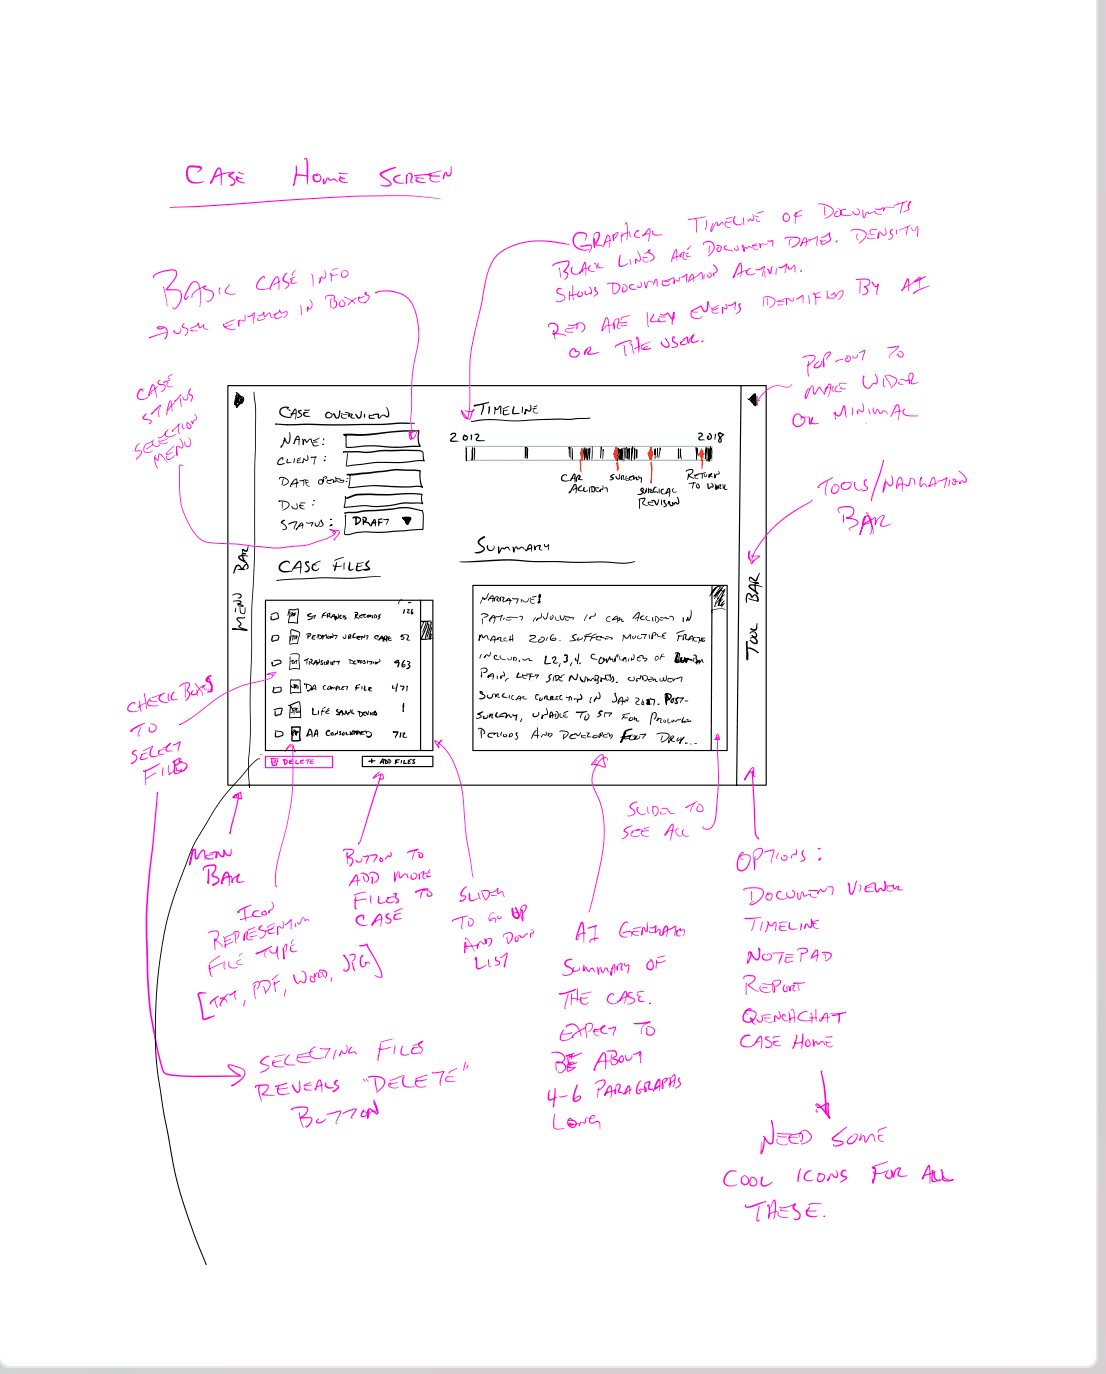 CASE HOME SCREEN
GRAPHICAL TIMELINE OF DOCUMENTS
BLACK LINES ARE DOCUMENT DATES. DENSITY
SHOWS DOCUMENTATION ACTIVITY.
RED ARE KEY EVENTS IDENTIFIED BY AI
OR THE USER.
BASIC CASE INFO
→ USER ENTERED IN BOXES
CASE
STATUS
SELECTION
MENU
POP-OUT TO
MAKE WIDER
OR MINIMAL
TOOLS/NAVIGATION
BAR
CASE OVERVIEW
NAME:
CLIENT:
DATE OPENED:
DUE:
STATUS: DRAFT
TIMELINE
2012 2018
CAR
ACCIDENT
SURGERY
SURGICAL
REVISION
RETURN
TO WORK
MENU BAR
TOOL BAR
CASE FILES
ST FRANCIS RECORDS 126
PIEDMONT URGENT CARE 52
TRANSCRIPT DEPOSITION 963
DA COMPLET FILE 471
LIFE 1
AA CONSOLIDATED 712
DELETE
+ ADD FILES
SUMMARY
NARRATIVE:
PATIENT INVOLVED IN CAR ACCIDENT IN
MARCH 2016. SUFFERS MULTIPLE
INCLUDING L2,3,4. COMPLAINED OF
PAIN, LEFT SIDE NUMBNESS. UNDERWENT
SURGICAL CORRECTION IN JAN 2017. POST-
SURGERY, UNABLE TO SIT FOR PROLONGED
PERIODS AND DEVELOPED FOOT DROP...
CHECK BOXES
TO
SELECT
FILES
MENU
BAR
ICON
REPRESENTING
FILE TYPE
[TXT, PDF, WORD, JPG]
BUTTON TO
ADD MORE
FILES TO
CASE
SLIDER
TO GO UP
AND DOWN
LIST
SLIDER TO
SEE ALL
AI GENERATED
SUMMARY OF
THE CASE.
EXPECT TO
BE ABOUT
4-6 PARAGRAPHS
LONG
SELECTING FILES
REVEALS "DELETE"
BUTTON
OPTIONS:
DOCUMENT VIEWER
TIMELINE
NOTEPAD
REPORT
QUENCHCHAT
CASE HOME
NEED SOME
COOL ICONS FOR ALL
THESE.